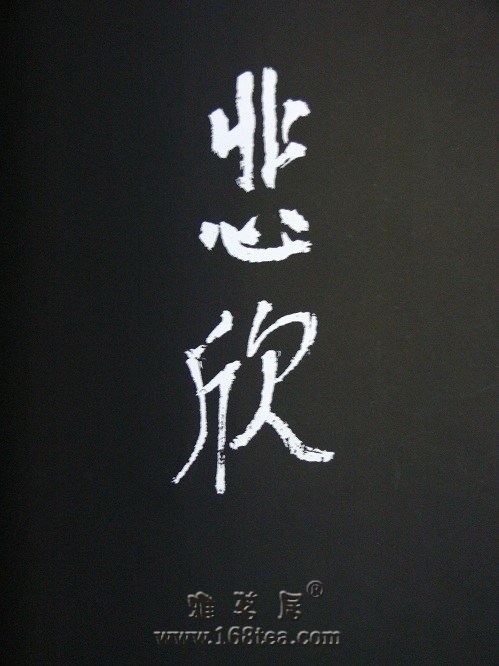 悲
欣
雅茗居®
www.168tea.com